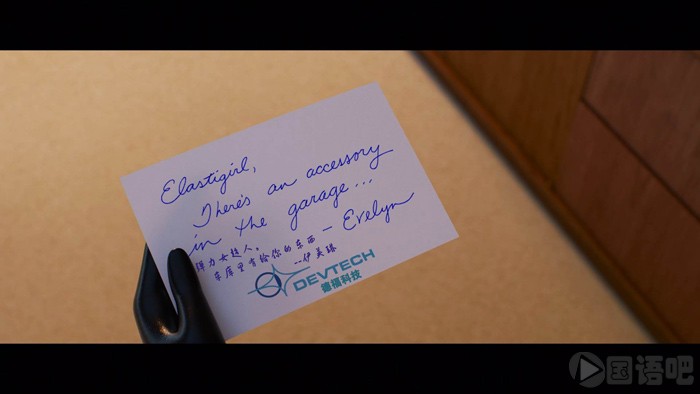 Elastigirl,
There's an accessory
in the garage...
— Evelyn
弹力女超人。
车库里有给你的东西
--伊美臻
DEVTECH
德福科技
国语吧